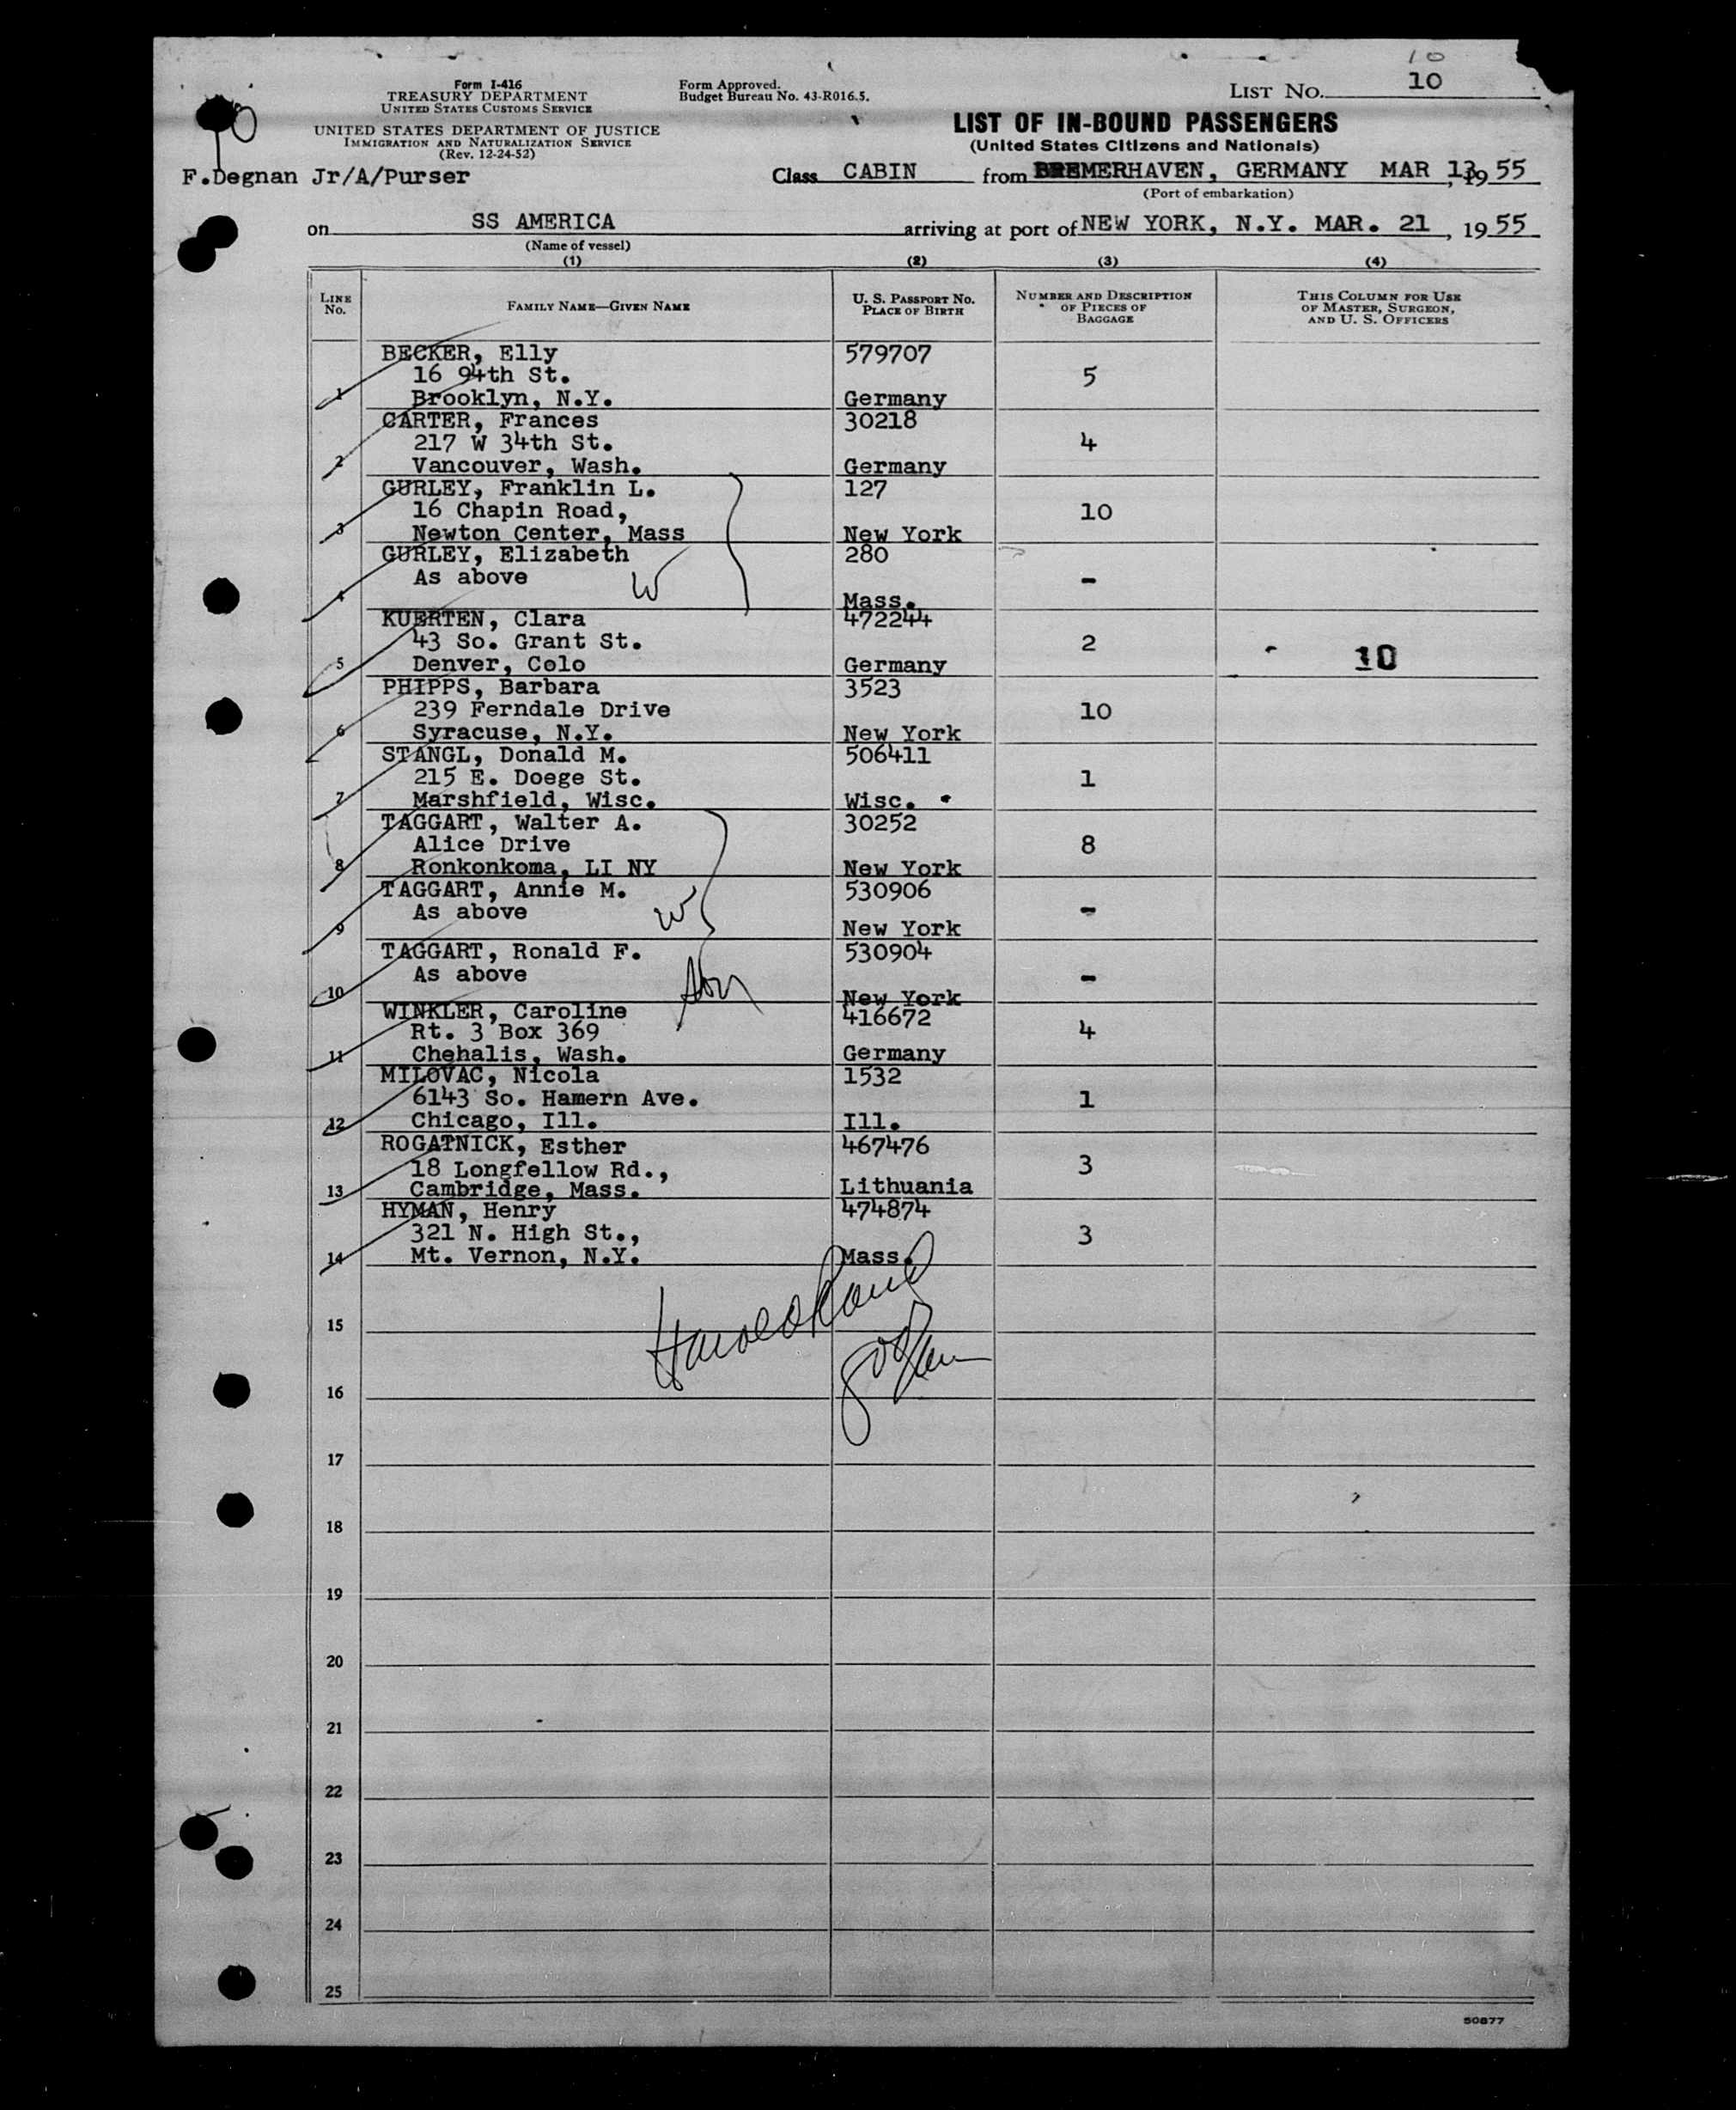 10
Form I-416
TREASURY DEPARTMENT
UNITED STATES CUSTOMS SERVICE
UNITED STATES DEPARTMENT OF JUSTICE
IMMIGRATION AND NATURALIZATION SERVICE
(Rev. 12-24-52)
F.Degnan Jr/A/Purser
Form Approved.
Budget Bureau No. 43-R016.5.
LIST NO. 10
LIST OF IN-BOUND PASSENGERS
(United States Citizens and Nationals)
Class CABIN from BREMERHAVEN, GERMANY MAR 13, 1955
(Port of embarkation)
on SS AMERICA arriving at port of NEW YORK, N.Y. MAR. 21, 1955
(Name of vessel)
(1) (2) (3) (4)
LINE No.
FAMILY NAME—GIVEN NAME
U. S. PASSPORT NO.
PLACE OF BIRTH
NUMBER AND DESCRIPTION
OF PIECES OF
BAGGAGE
THIS COLUMN FOR USE
OF MASTER, SURGEON,
AND U. S. OFFICERS
BECKER, Elly 579707
16 94th St. 5
1 Brooklyn, N.Y. Germany
CARTER, Frances 30218
217 W 34th St. 4
2 Vancouver, Wash. Germany
GURLEY, Franklin L. 127
16 Chapin Road, 10
3 Newton Center, Mass New York
GURLEY, Elizabeth 280
As above W -
4 Mass.
KUERTEN, Clara 472244
43 So. Grant St. 2
5 Denver, Colo Germany 10
PHIPPS, Barbara 3523
239 Ferndale Drive 10
6 Syracuse, N.Y. New York
STANGL, Donald M. 506411
215 E. Doege St. 1
7 Marshfield, Wisc. Wisc.
TAGGART, Walter A. 30252
Alice Drive 8
8 Ronkonkoma, LI NY New York
TAGGART, Annie M. 530906
As above W -
9 New York
TAGGART, Ronald F. 530904
As above son -
10 New York
WINKLER, Caroline 416672
Rt. 3 Box 369 4
11 Chehalis, Wash. Germany
MILOVAC, Nicola 1532
6143 So. Hamern Ave. 1
12 Chicago, Ill. Ill.
ROGATNICK, Esther 467476
18 Longfellow Rd., 3
13 Cambridge, Mass. Lithuania
HYMAN, Henry 474874
321 N. High St., 3
14 Mt. Vernon, N.Y. Mass.
15
16
17
18
19
20
21
22
23
24
25
50877